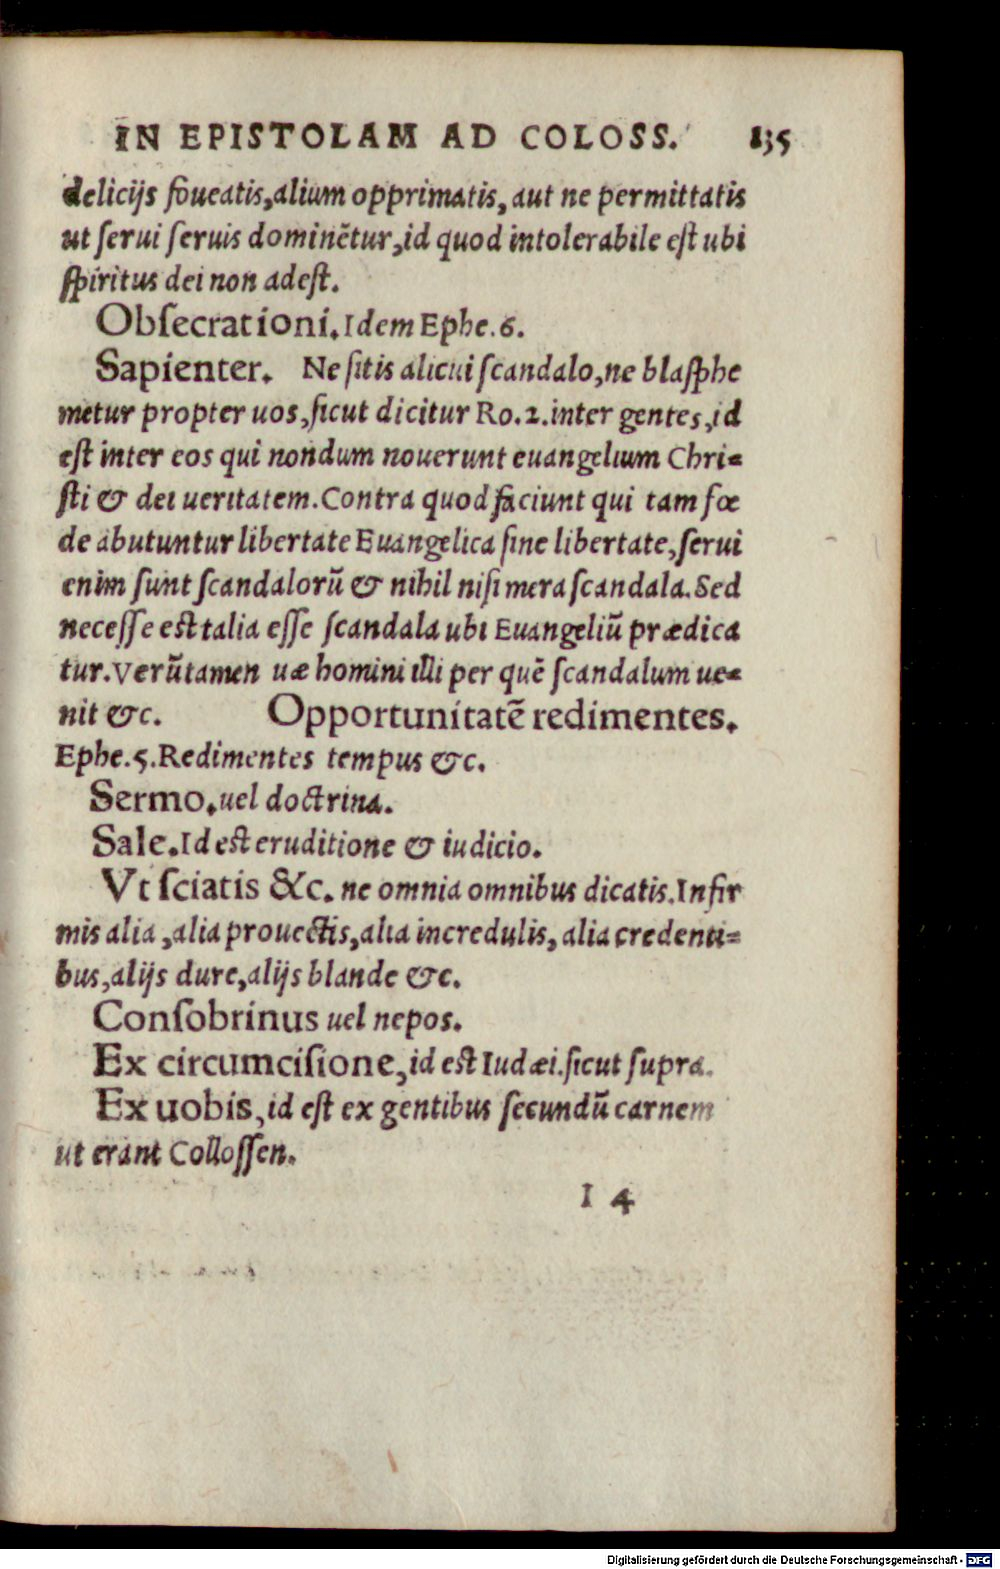 IN EPISTOLAM AD COLOSS. 135
delicijs foueatis, alium opprimatis, aut ne permittatis
ut serui seruis dominẽtur, id quod intolerabile est ubi
spiritus dei non adest.
Obsecrationi. Idem Ephe. 6.
Sapienter. Ne sitis alicui scandalo, ne blasphe
metur propter uos, sicut dicitur Ro. 2. inter gentes, id
est inter eos qui nondum nouerunt euangelium Chri-
sti & dei ueritatem. Contra quod faciunt qui tam fœ
de abutuntur libertate Euangelica sine libertate, serui
enim sunt scandalorũ & nihil nisi mera scandala. Sed
necesse est talia esse scandala ubi Euangeliũ prædica
tur. Verũtamen uæ homini illi per quẽ scandalum ue-
nit &c. Opportunitatẽ redimentes.
Ephe. 5. Redimentes tempus &c.
Sermo. uel doctrina.
Sale. Id est eruditione & iudicio.
Vt sciatis &c. ne omnia omnibus dicatis. Infir
mis alia, alia prouectis, alia incredulis, alia credenti-
bus, alijs dure, alijs blande &c.
Consobrinus uel nepos.
Ex circumcisione, id est Iudæi. sicut supra.
Ex uobis, id est ex gentibus secundũ carnem
ut erant Collossen.
I 4
Digitalisierung gefördert durch die Deutsche Forschungsgemeinschaft - DFG